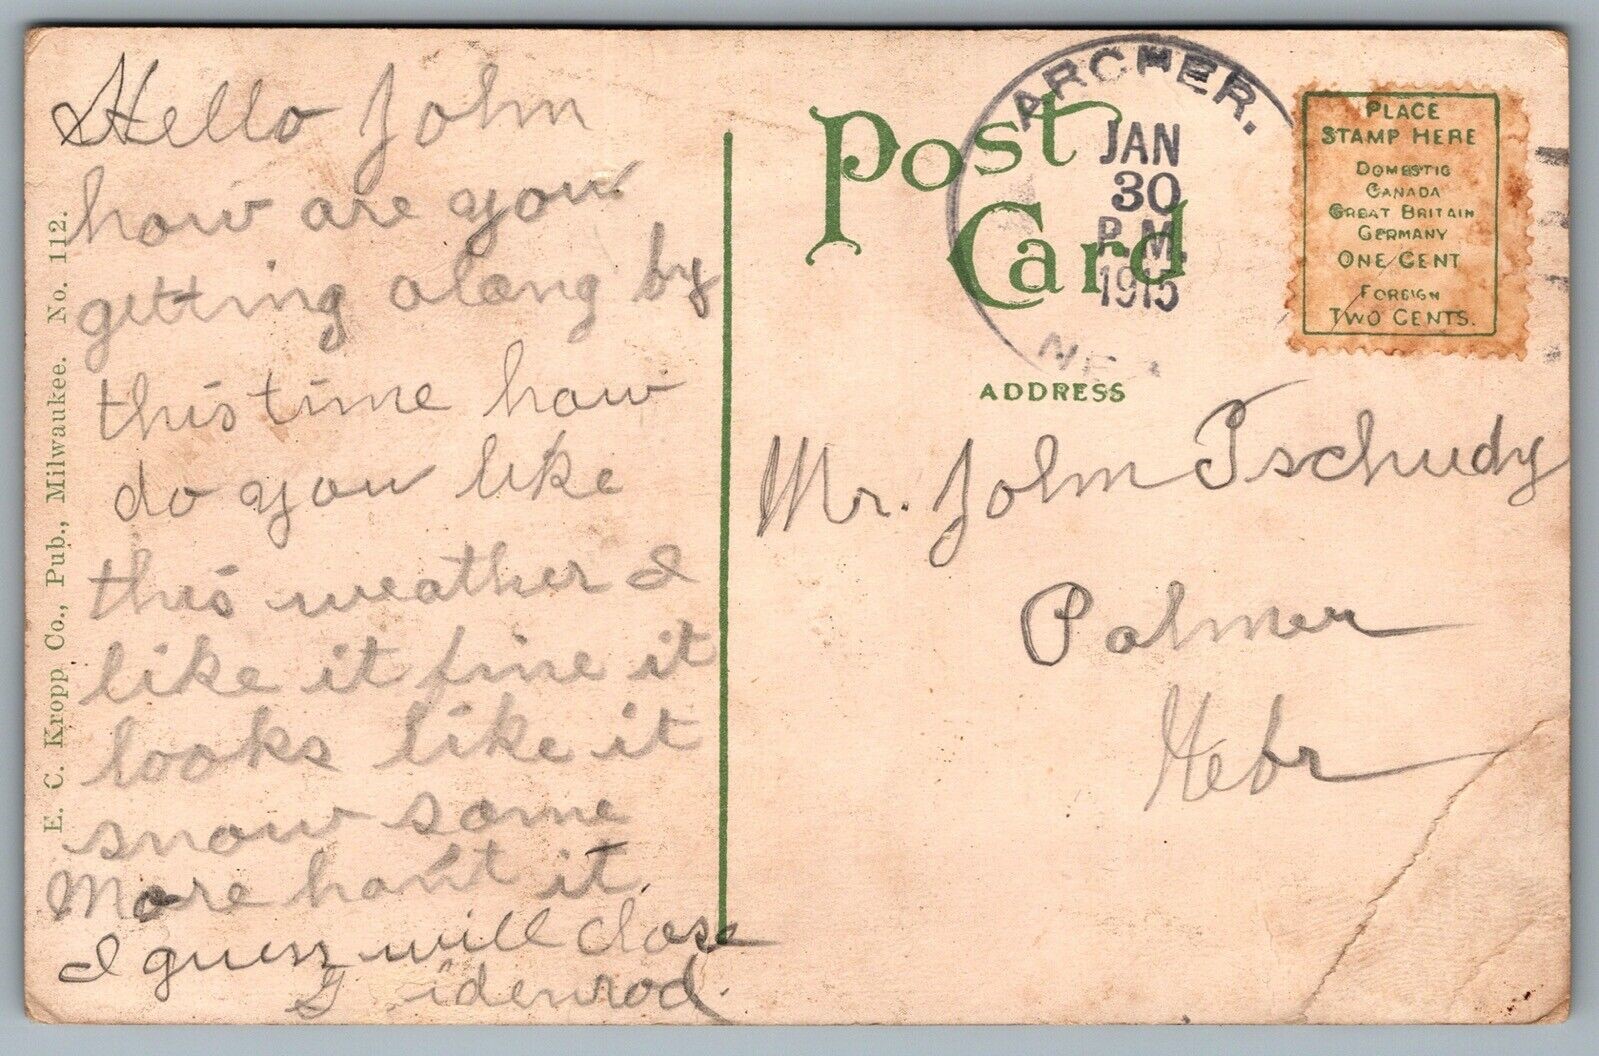 Hello John
how are you
getting along by
this time how
do you like
this weather I
like it fine it
looks like it
snow some
More hant it
I guess will close
G idenrod.
E. C. Kropp Co., Pub., Milwaukee. No. 112.
Post Card
ARCHER.
JAN
30
P.M.
1915
PLACE
STAMP HERE
DOMESTIC
CANADA
GREAT BRITAIN
GERMANY
ONE CENT
FOREIGN
TWO CENTS.
ADDRESS
Mr. John Tschudy
Palmer
Nebr